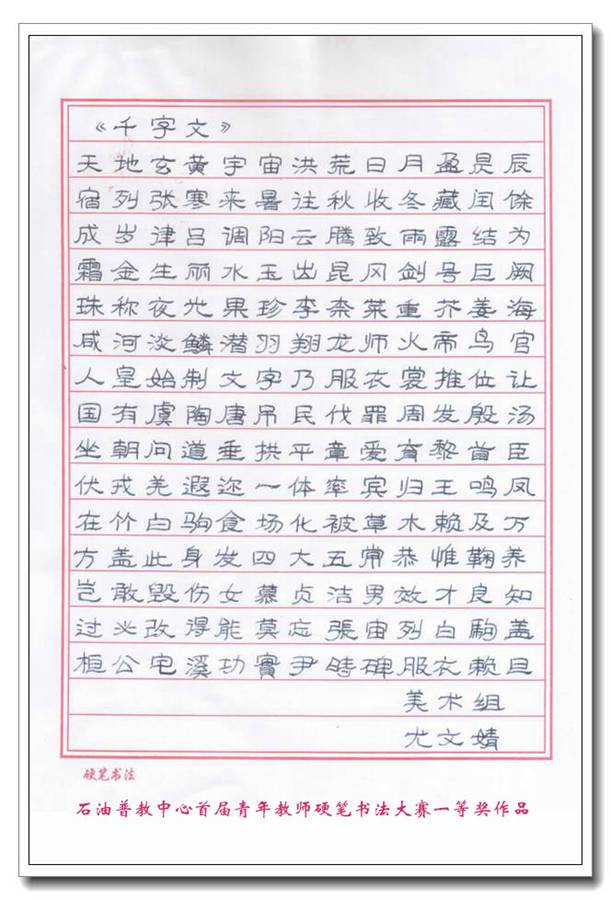 《千字文》
天地玄黄宇宙洪荒日月盈昃辰
宿列张寒来暑往秋收冬藏闰馀
成岁律吕调阳云腾致雨露结为
霜金生丽水玉出昆冈剑号巨阙
珠称夜光果珍李柰菜重芥姜海
咸河淡鳞潜羽翔龙师火帝鸟官
人皇始制文字乃服衣裳推位让
国有虞陶唐吊民代罪周发殷汤
坐朝问道垂拱平章爱育黎首臣
伏戎羌遐迩一体率宾归王鸣凤
在竹白驹食场化被草木赖及万
方盖此身发四大五常恭惟鞠养
岂敢毁伤女慕贞洁男效才良知
过必改得能莫忘張宙列白駒盖
桓公宅溪功實尹時碑服衣赖旦
美术组
尤文婧
硬笔书法
石油普教中心首届青年教师硬笔书法大赛一等奖作品